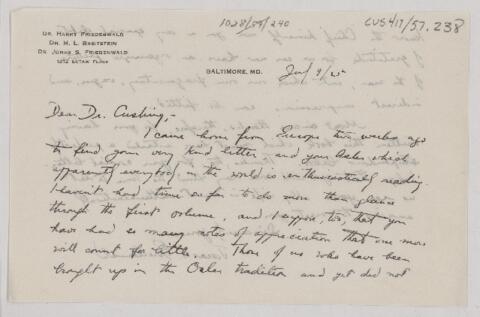 DR. HARRY FRIEDENWALD
DR. H. L. BREITSTEIN
DR. JONAS S. FRIEDENWALD
1212 EUTAW PLACE
1028/55/240
CUS417/57.238
BALTIMORE, MD.
9/25
Dear Dr. Cushing,-
I came home from Europe two weeks ago
to find your very kind letter and your Osler which
apparently everybody in the world is enthusiastically reading.
I haven't had time so far to do more than glance
through the first volume, and I suppose, too, that you
have had so many notes of appreciation that one more
will count for little. Those of us who have been
brought up in the Osler tradition and yet did not